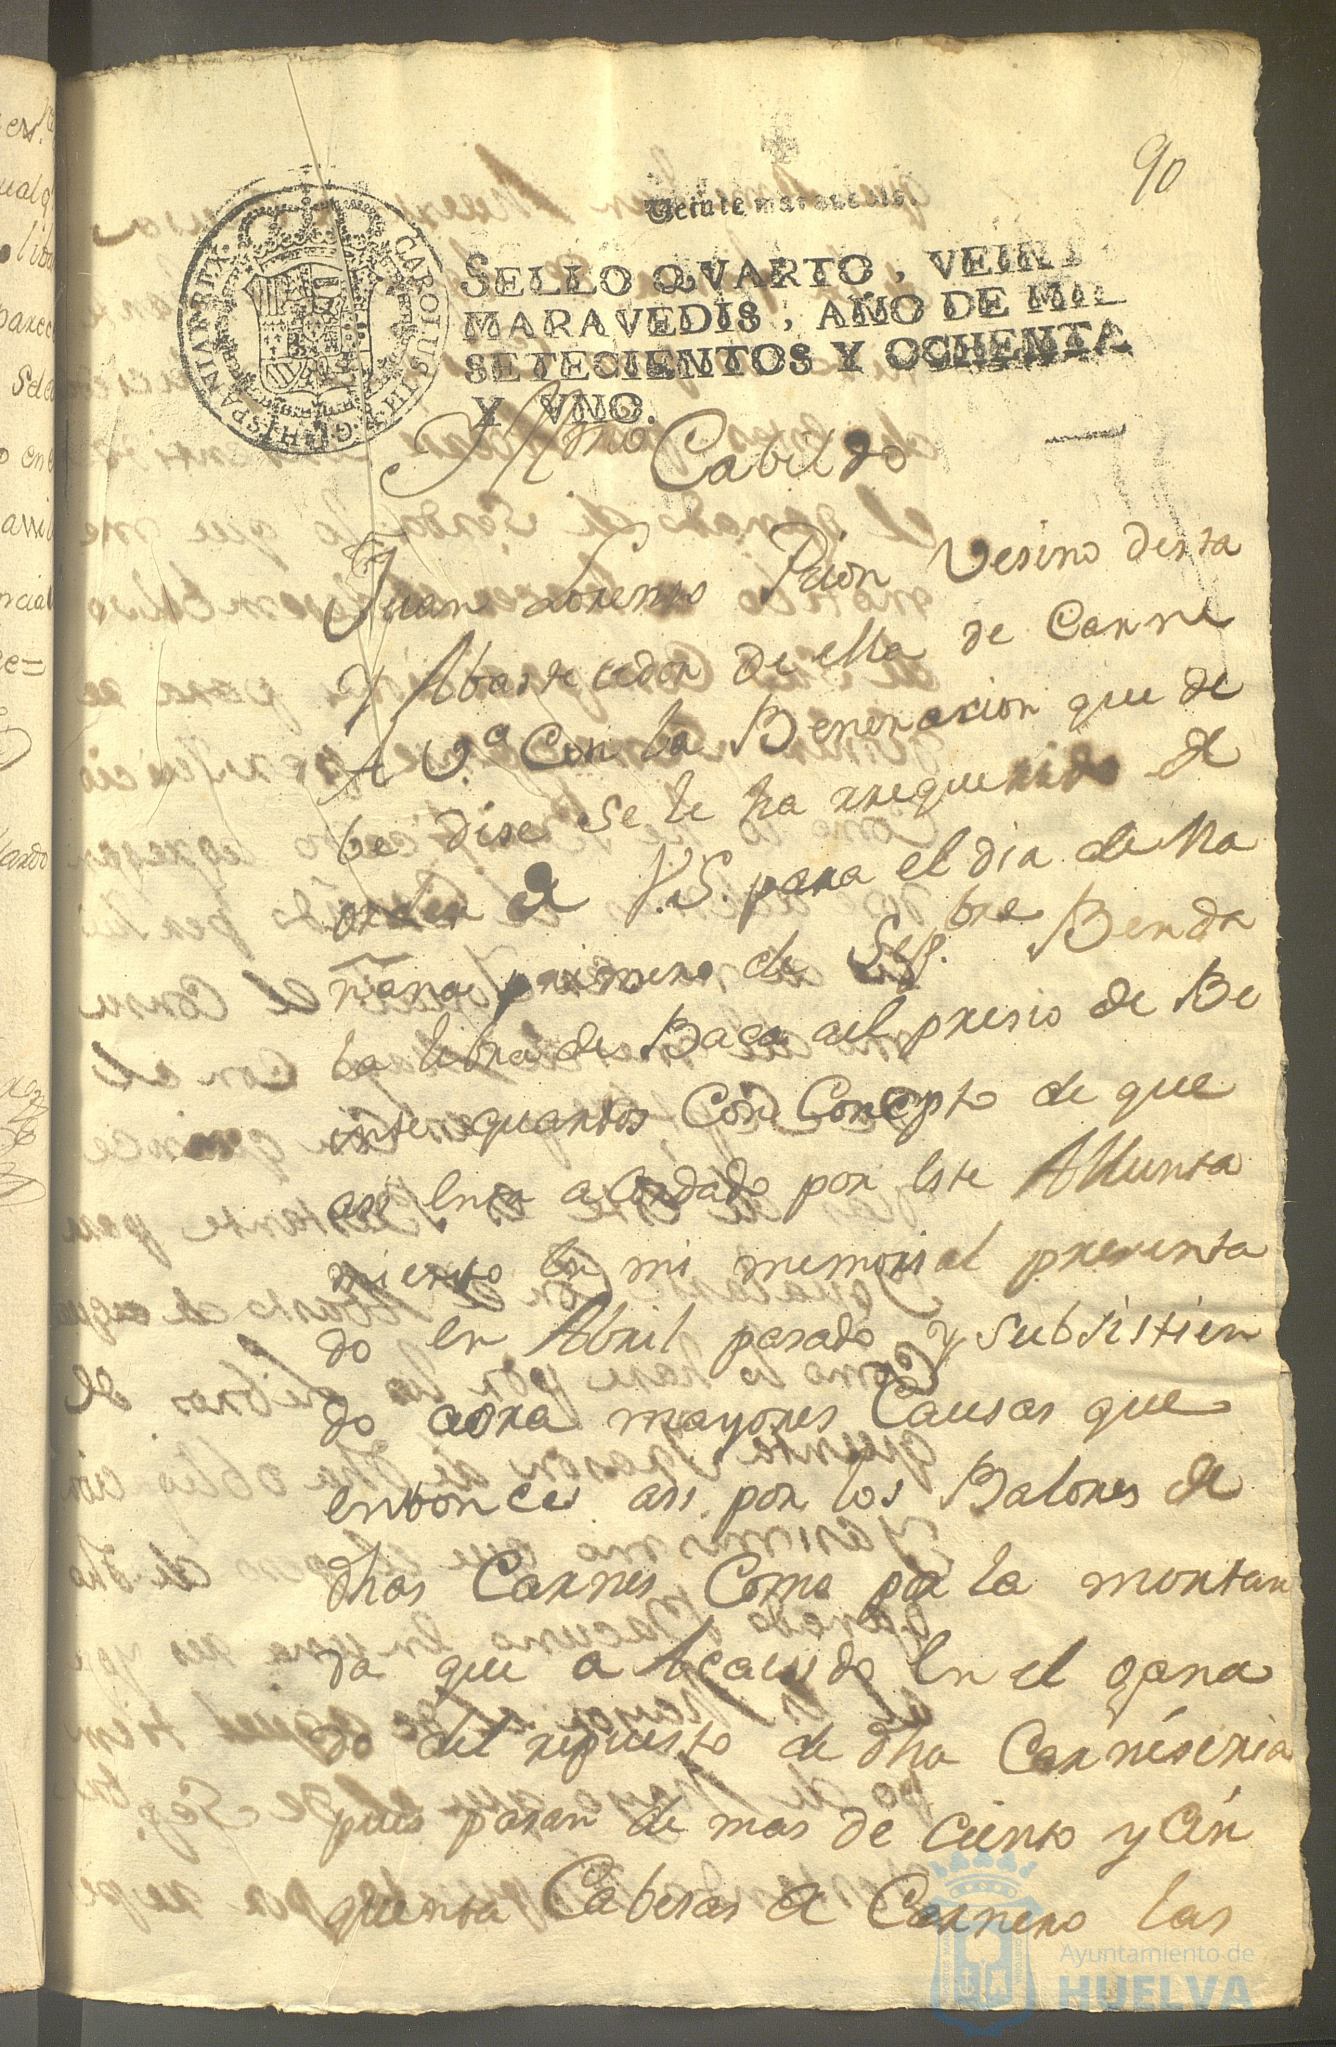 90
Veinte maravedis.
SELLO QVARTO, VEINT
MARAVEDIS, AÑO DE MIL
SETECIENTOS Y OCHENTA
Y VNO.
CAROLUS III D G HISPANIAR REX
Yltmo Cabildo
Juan Lorenso Pison Vesino desta
Y Abastecedor de ella de Carne
A V.ª Con la Beneracion que de
be dise se le ha rrequerido de
orden de V.S. para el dia de Ma
ñana primero de Sep.bre Benda
la libra de Baca al presio de Be
inte quartos Con Concepto de que
asi lo acordado por Este Allunta
miento En mi memorial presenta
do en Abril pasado y subsistien
do aora mayores Causas que
entonces asi por los Balores de
dhas Carnes Como por la mortan
da que a acaesido En el gana
do del repuesto de dha Carniseria
pues pasan de mas de ciento y Cin
quenta Cabesas de Carnero las
Ayuntamiento de
HUELVA